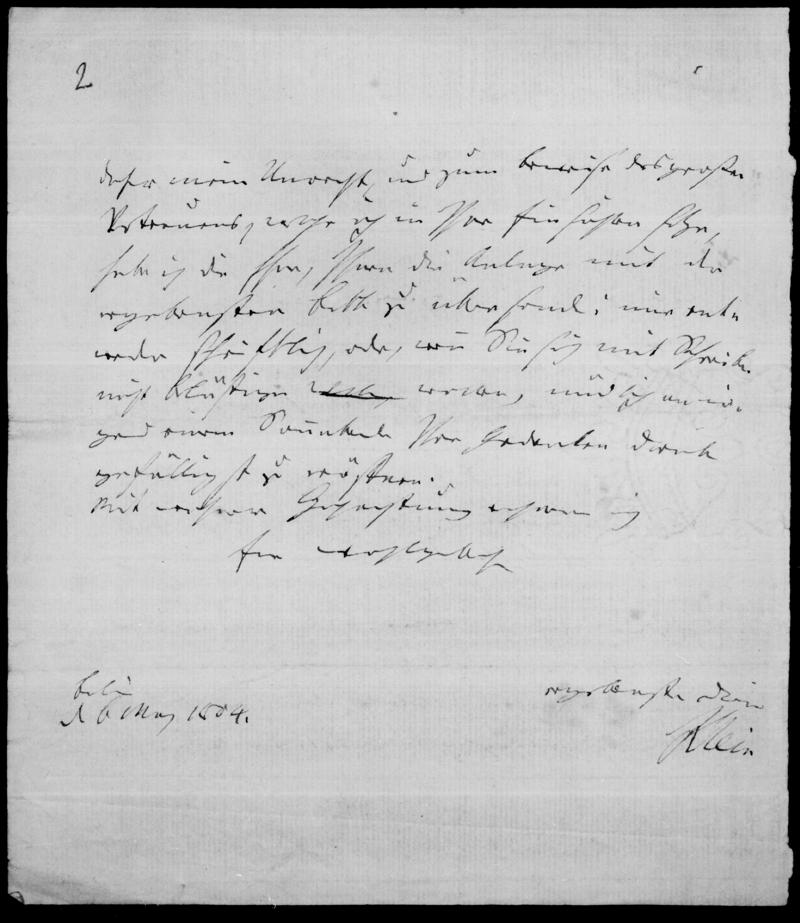 2
daher mein Unrecht, und zum Beweise des großen
Vertrauens, welches ich in Ihre Einsichten setze,
habe ich die Ehre, Ihnen die Anlage mit der
ergebensten Bitte zu übersenden: mir ent-
weder schriftlich, oder, wenn Sie sich mit Schreiben
nicht belästigen wollen, mündlich an ir-
gend einem Sonnabende Ihre Gedanken darüber
gefälligst zu eröffnen.
Mit wahrer Hochachtung ersterbe ich
Ew Wohlgeb
Berlin
d 6 May 1804.
ergebenster Diener
Klein